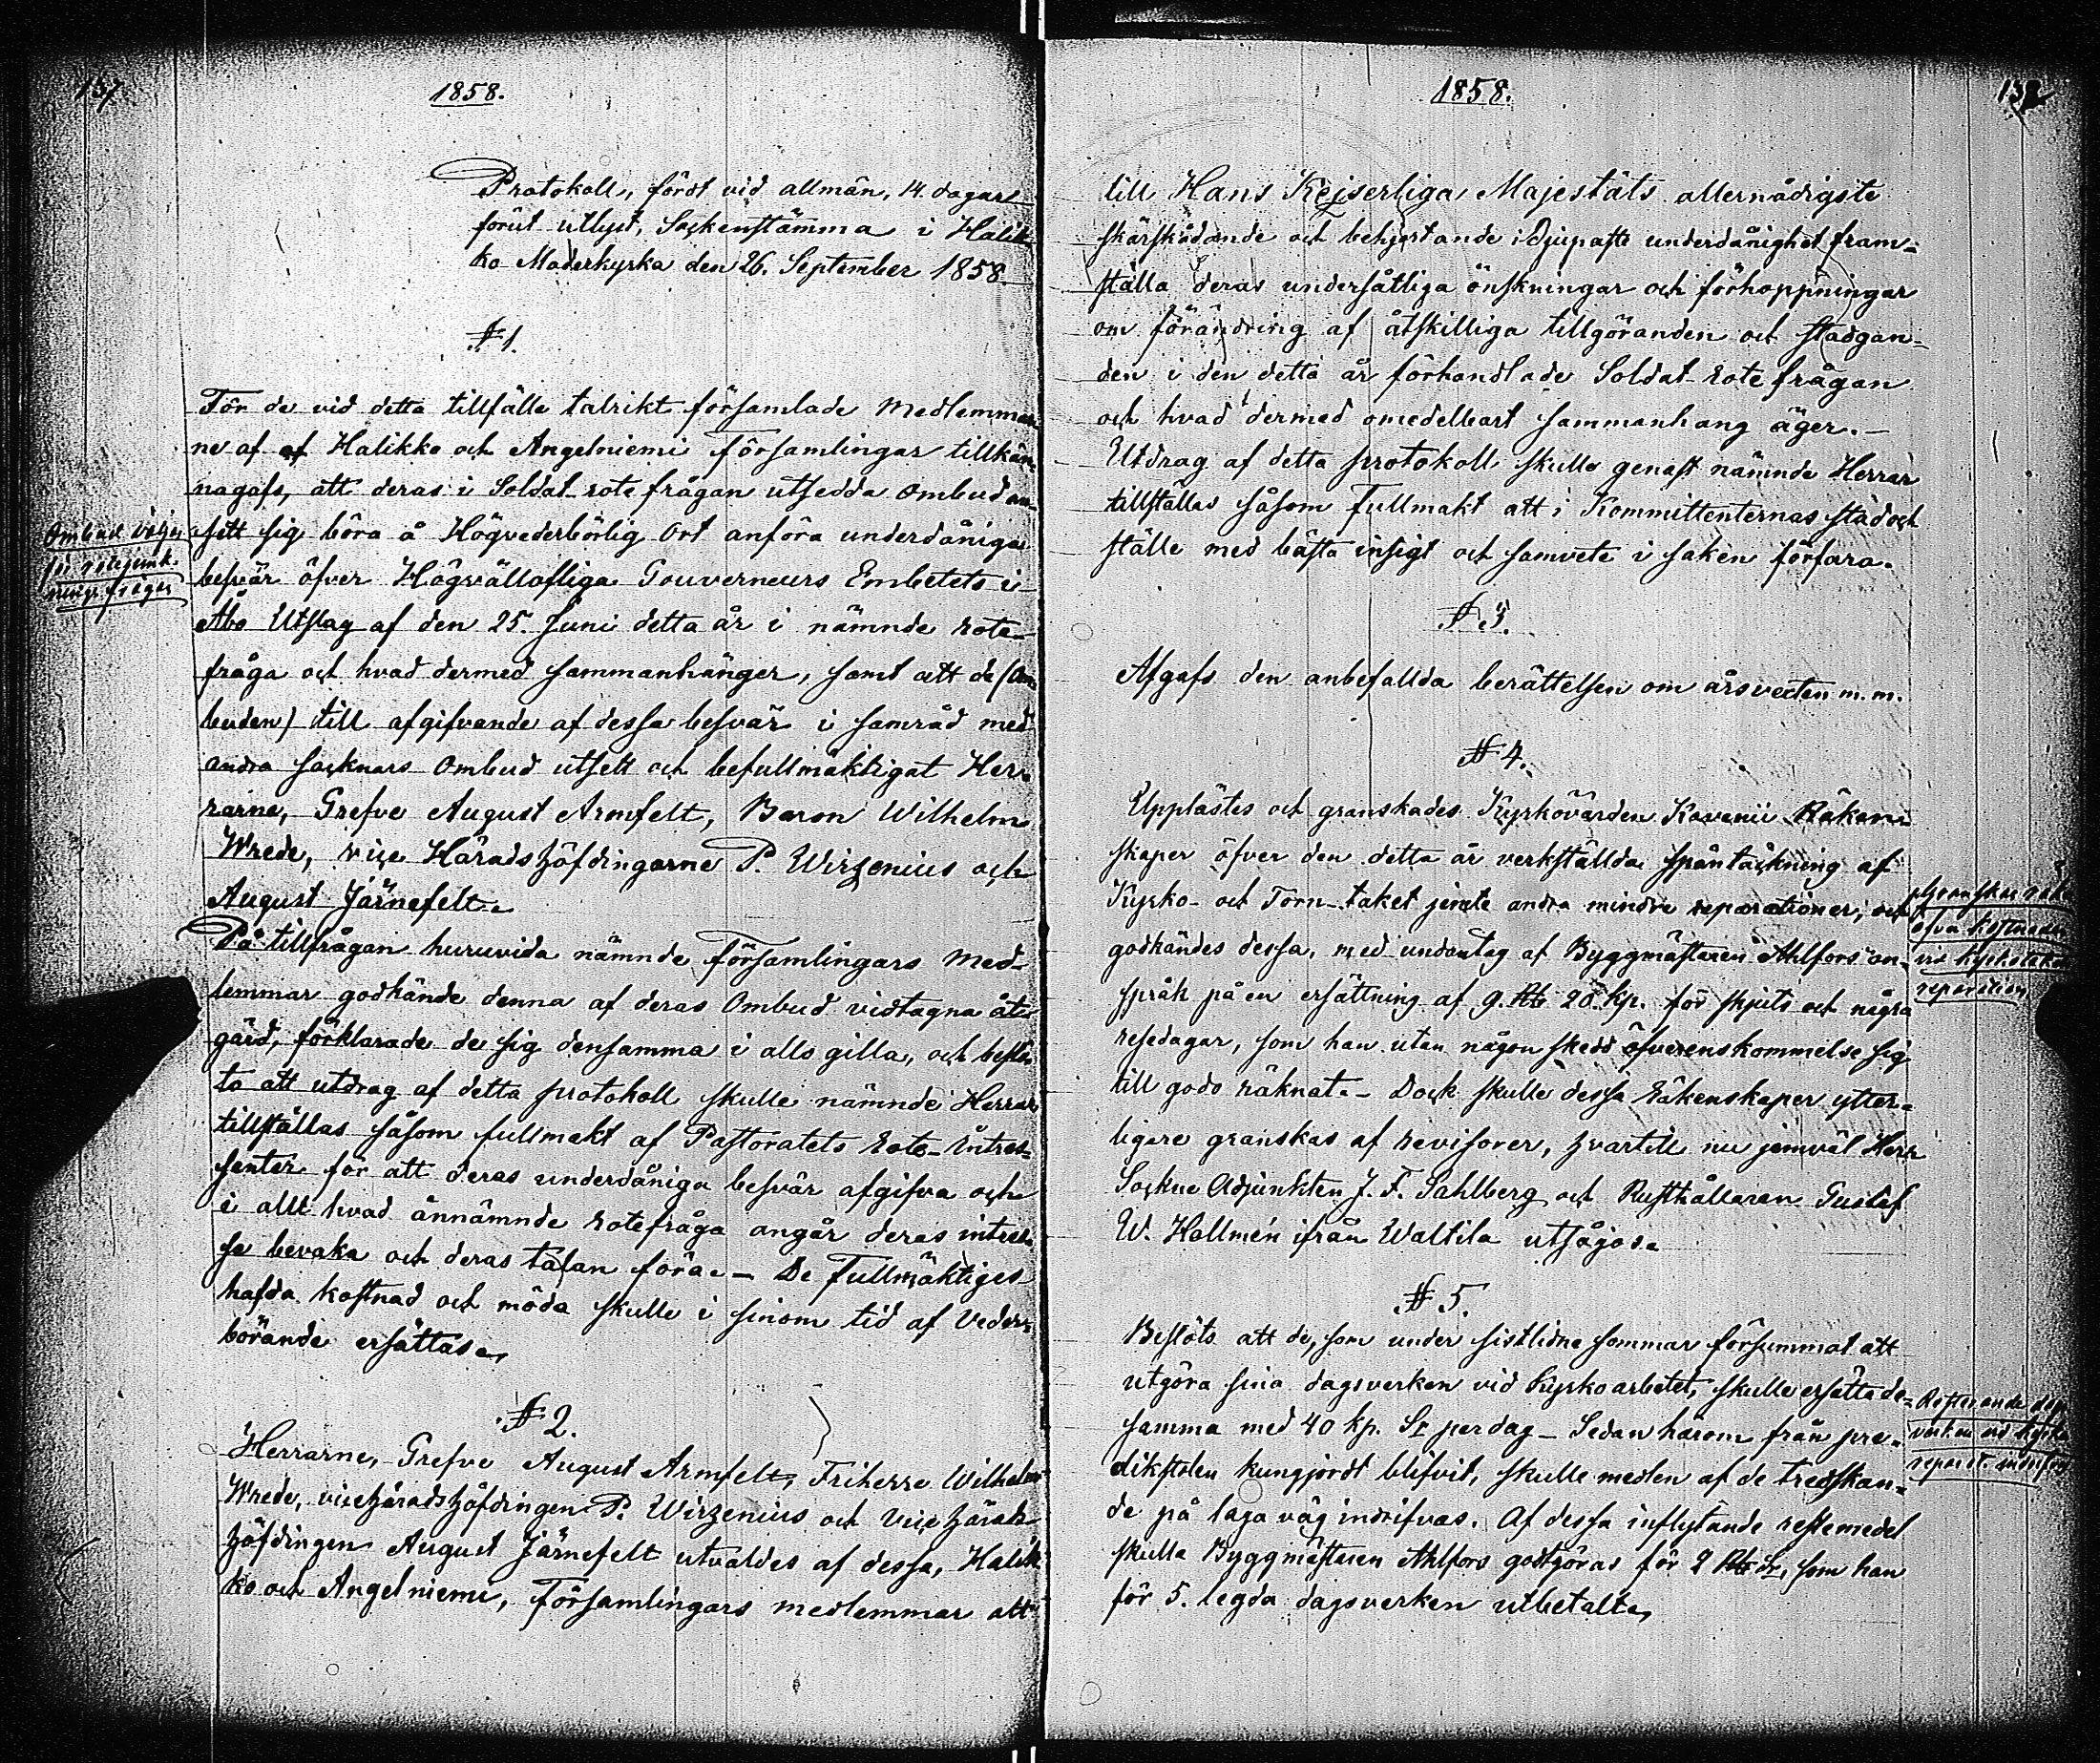 137
1858.
Protokoll, fördt vid allmän, 14. dagar
förut utlyst, Sockenstämma i Halik-
ko Moderkyrka den 26. September 1858.
§ 1.
För de vid detta tillfälle talrikt församlade medlemmar-
ne af af Halikko och Angelniemi Församlingar tillkän-
nagafs, att deras i Soldat-rote frågan utsedda ombud an-
sett sig böra å Högvederbörlig Ort anföra underdåniga
besvär öfver Högvällofliga Gouverneurs Embetets i
Åbo Utslag af den 25. Juni detta år i nämnde rote-
fråga och hvad dermed sammanhänger, samt att de (Om-
buden) till afgifvande af dessa besvär i samråd med
andra socknars Ombud utsett och befullmäktigat Her-
rarne, Grefve August Armfelt, Baron Wilhelm
Wrede, vice Häradshöfdingarne P. Wirzenius och
August Järnefelt.
Ombud väljes
för rotejemk-
nings frågan
På tillfrågan huruvida nämnde Församlingars Med-
lemmar godkände denna af deras Ombud vidtagna åt-
gärd, förklarade de sig densamma i allo gilla, och beslu-
to att utdrag af detta protokoll skulle nämnde Herrar
tillställas såsom fullmakt af Pastoratets Rote-Intres-
senter för att deras underdåniga besvär afgifva och
i allt hvad ännämnde rotefråga angår deras intres-
se bevaka och deras talan föra. - De Fullmäktiges
hafda kostnad och möda skulle i sinom tid af Veder-
börande ersättas.
§ 2.
Herrarne, Grefve August Armfelt, Friherre Wilhelm
Wrede, vicehäradshöfdingen P. Wirzenius och Vice härads-
höfdingen August Järnefelt utvaldes af dessa, Halik-
ko och Angelniemi, Församlingars medlemmar att
1858.
138
till Hans Kejserliga Majestäts allernådigste
skärskådande och behjertande i djupaste underdånighet fram-
ställa deras undersåtliga önskningar och förhoppningar
om förändring af åtskilliga tillgöranden och stadgan-
den i den detta år förhandlade Soldat-rote frågan
och hvad dermed omedelbart sammanhang äger. -
Utdrag af detta protokoll skulle genast nämnde Herrar
tillställas såsom Fullmakt att i Kommittenternas stad och
ställe med bästa insigt och samvete i saken förfara.
§ 3.
Afgafs den anbefallda berättelsen om årsvexten m. m.
§ 4.
Upplästes och granskades Kyrkovärden Kavenii Räken-
skaper öfver den detta år verkställda spåntäckning af
Kyrko- och Torn-taket jemte andra mindre reparationer, och
godkändes dessa, med undantag af Byggmästaren Ahlfors an-
språk på en ersättning af 9. Rb 20. kp. för skjuts och några
resedagar, som han utan någon skedd öfverenskommelse sig
till godo räknat. - Dock skulle dessa Räkenskaper ytter-
ligare granskas af revisorer, hvartill nu jemväl Herr
Sockne Adjunkten J. F. Sahlberg och Rusthållaren Gustaf
W. Hallmén ifrån Waltila utsågos.
Granskas räk.
öfver kostnaden
vid kyrkotakets
reparation
§ 5.
Beslöts att de, som under sistlidne sommar försummat att
utgöra sina dagsverken vid Kyrkoarbetet, skulle ersätta de-
samma med 40 kp. Sr per dag - Sedan härom från pre-
dikstolen kungjordt blifvit, skulle medlen af de tredskan-
de på laga väg indrifvas. Af dessa inflytande restemedel
skulle Byggmästaren Ahlfors godtgöras för 2 Rb Sr, som han
för 5. legda dagsverken utbetalt.
Resterande dags-
verken vid kyrko
reparat. indrifvas